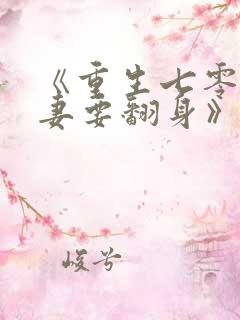 《重生七零
妻要翻身》
峻兮